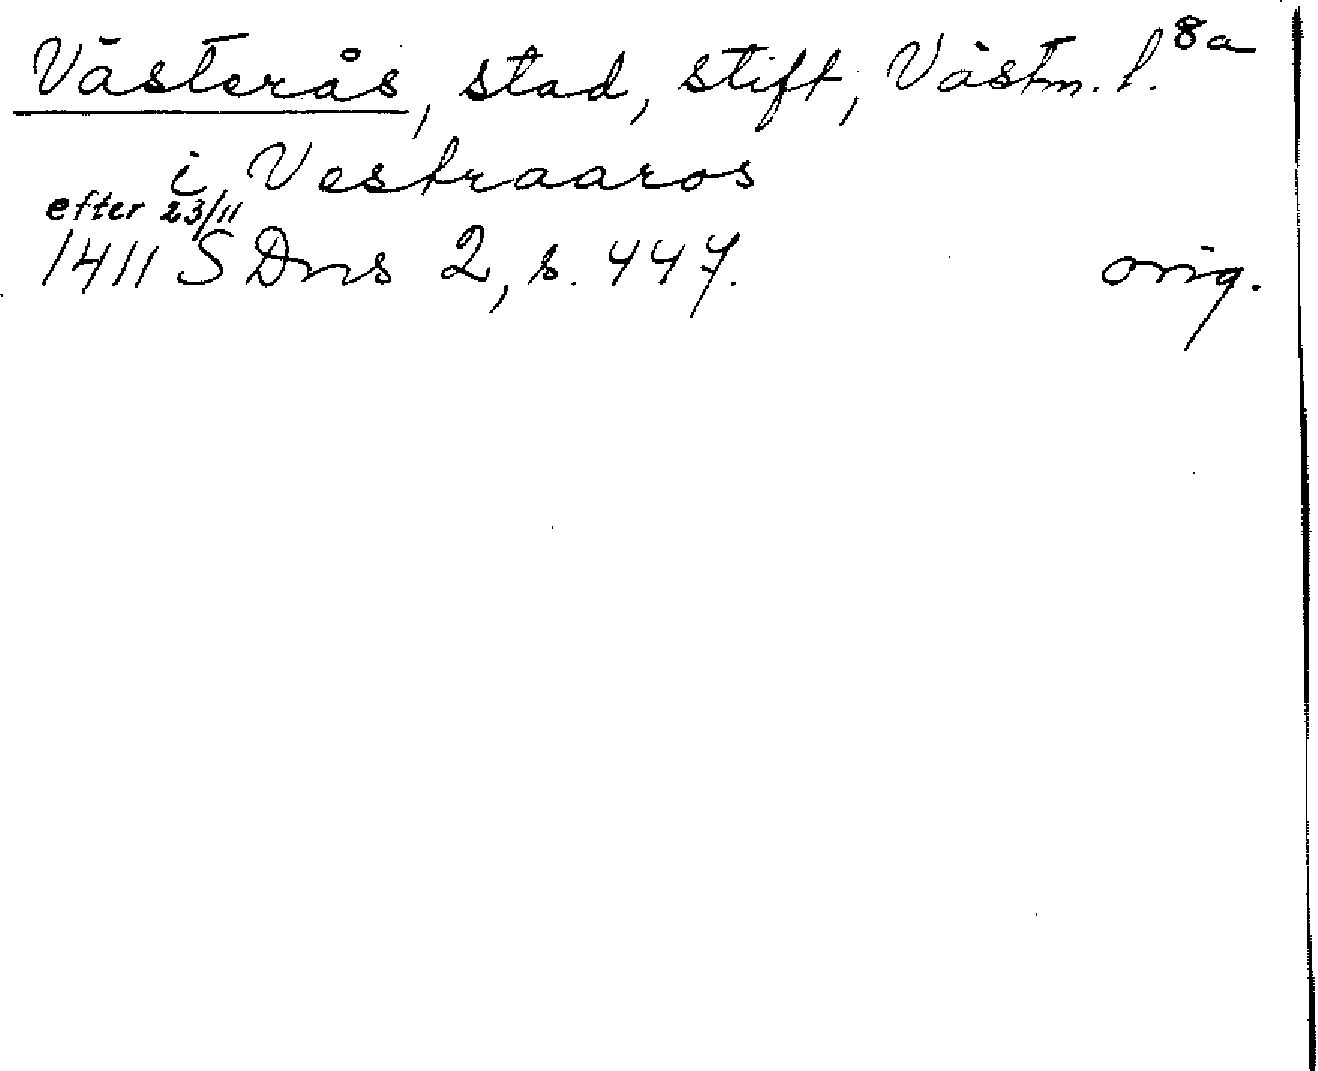 Västerås, stad, stift, Västm. l. 8a
i Vestraaros
efter 23/11
1411 SDns 2, s. 447.
orig.